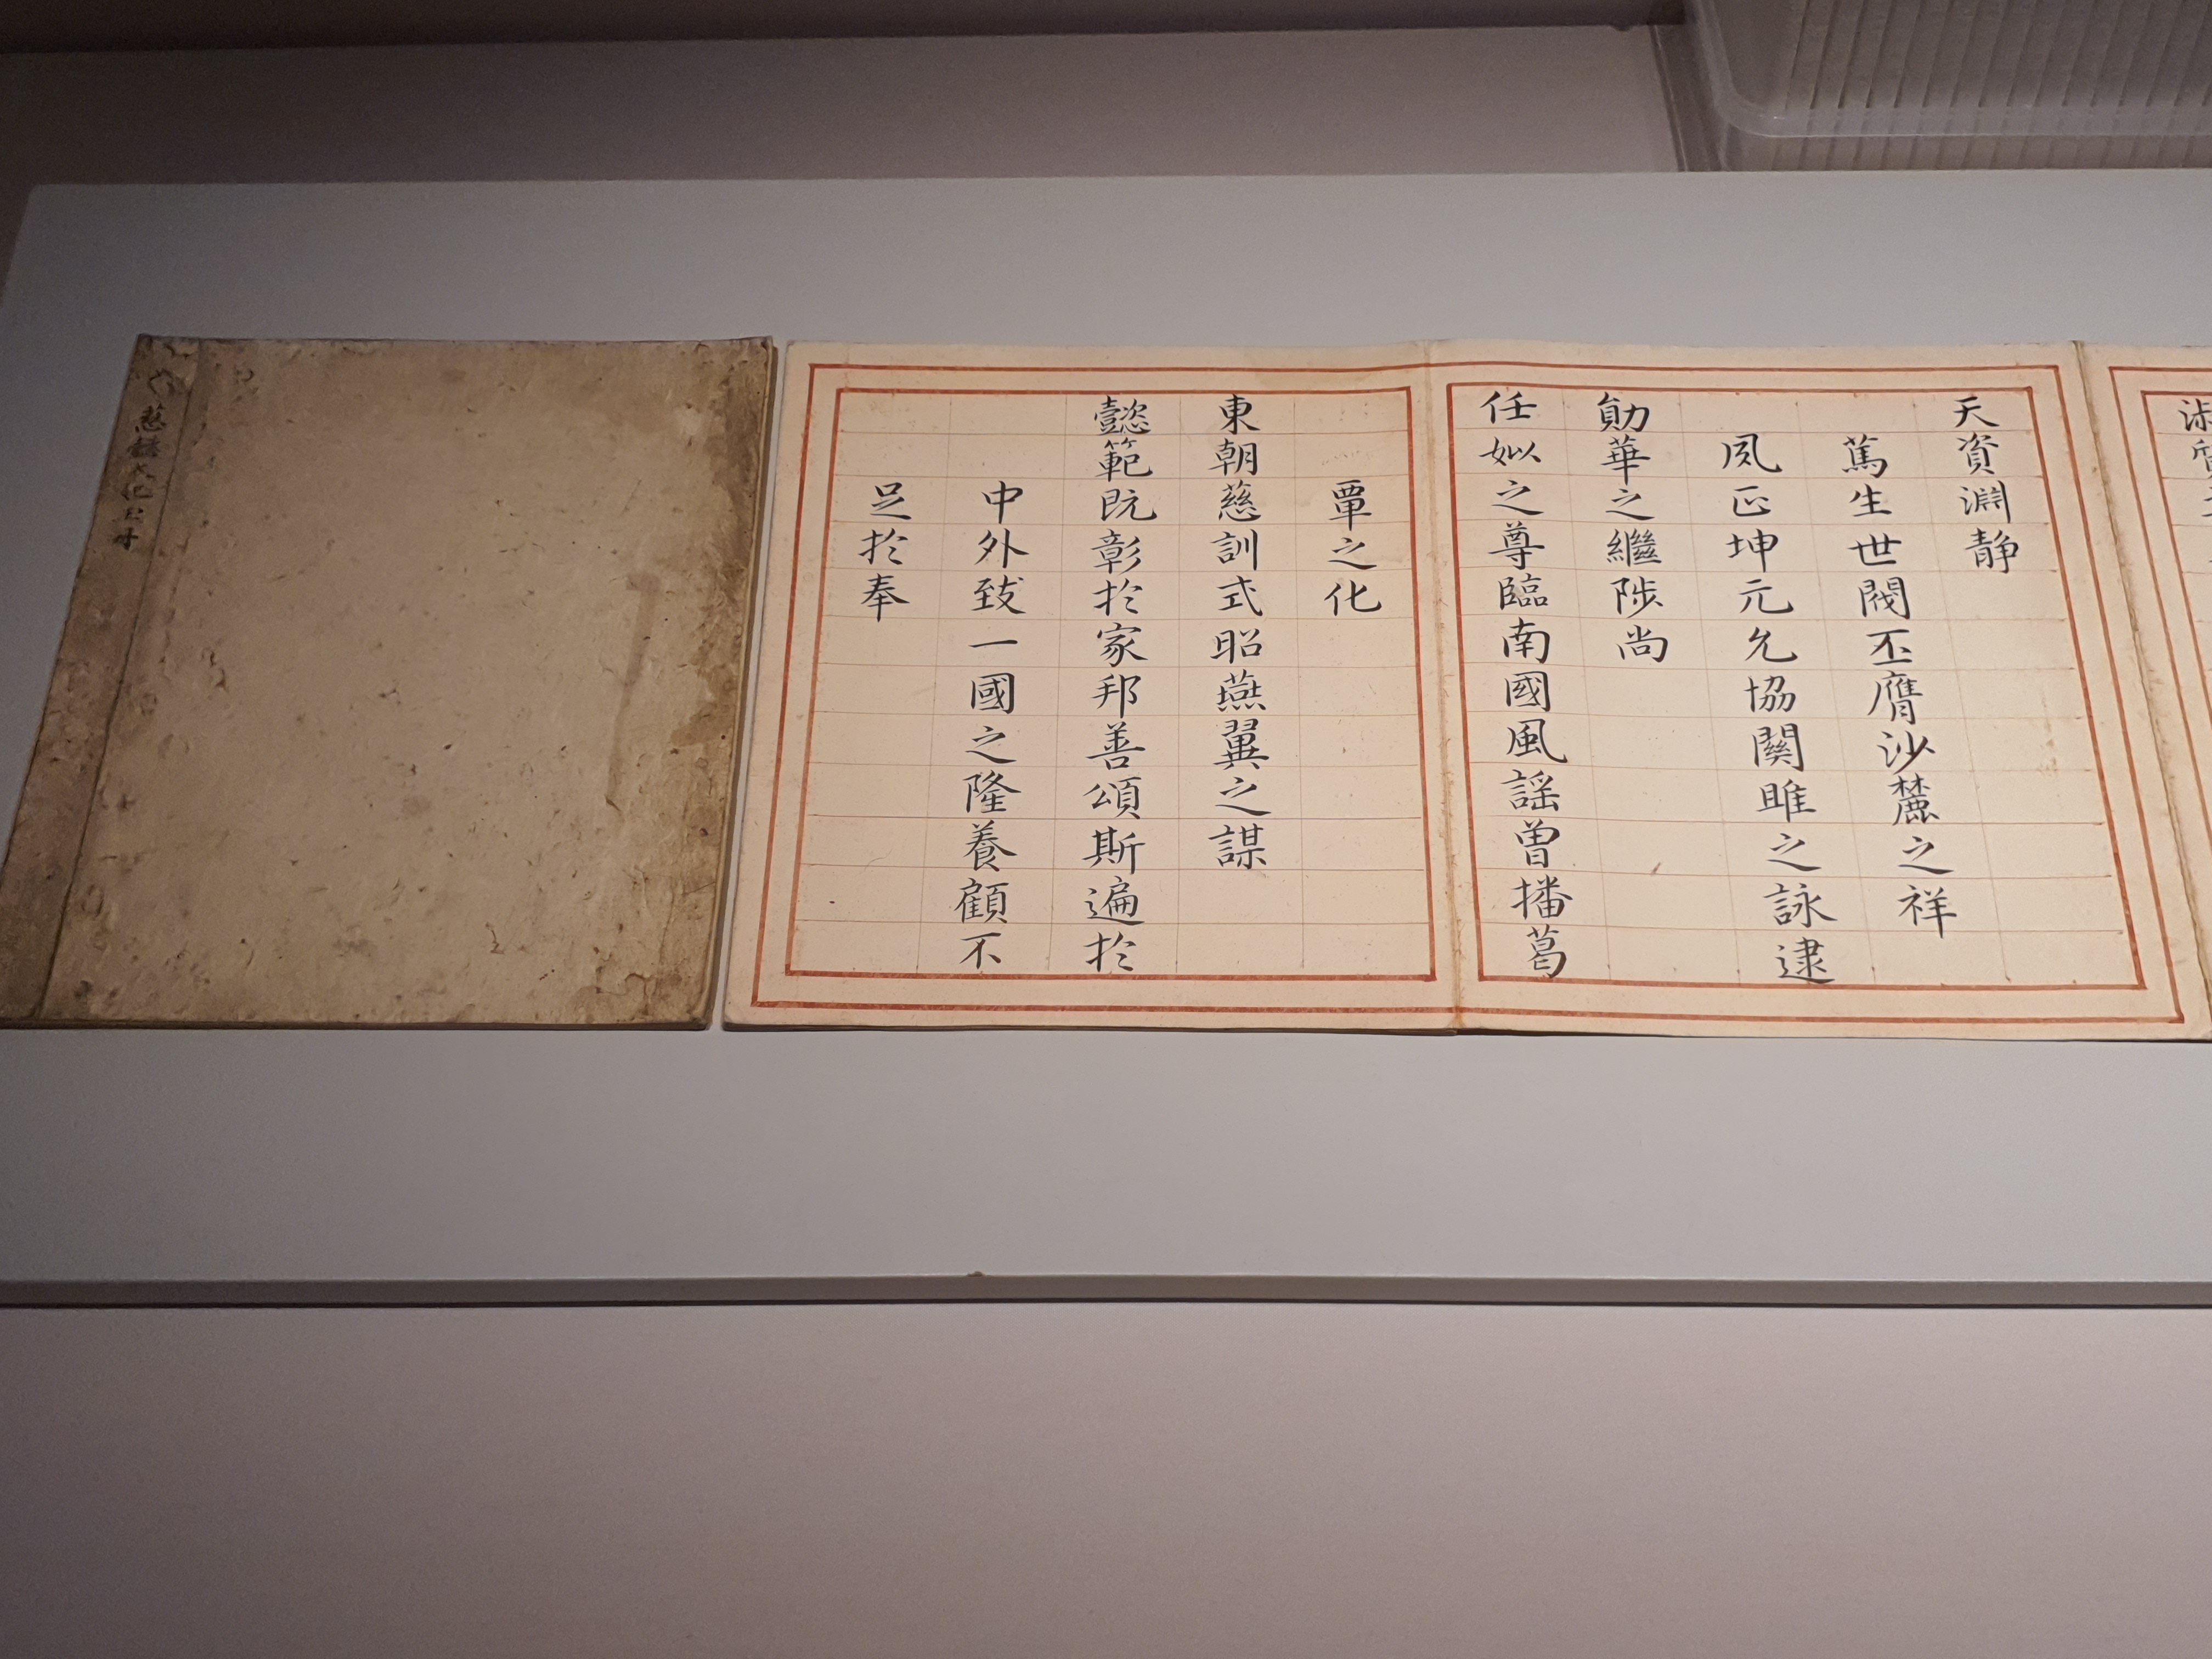 天資淵静
篤生世閥丕膺沙麓之祥
夙正坤元允協關雎之詠逮
勛華之繼陟尚
任姒之尊臨南國風謡曾播葛
覃之化
東朝慈訓式昭燕翼之謀
懿範既彰於家邦善頌斯遍於
中外致一國之隆養顧不
足於奉